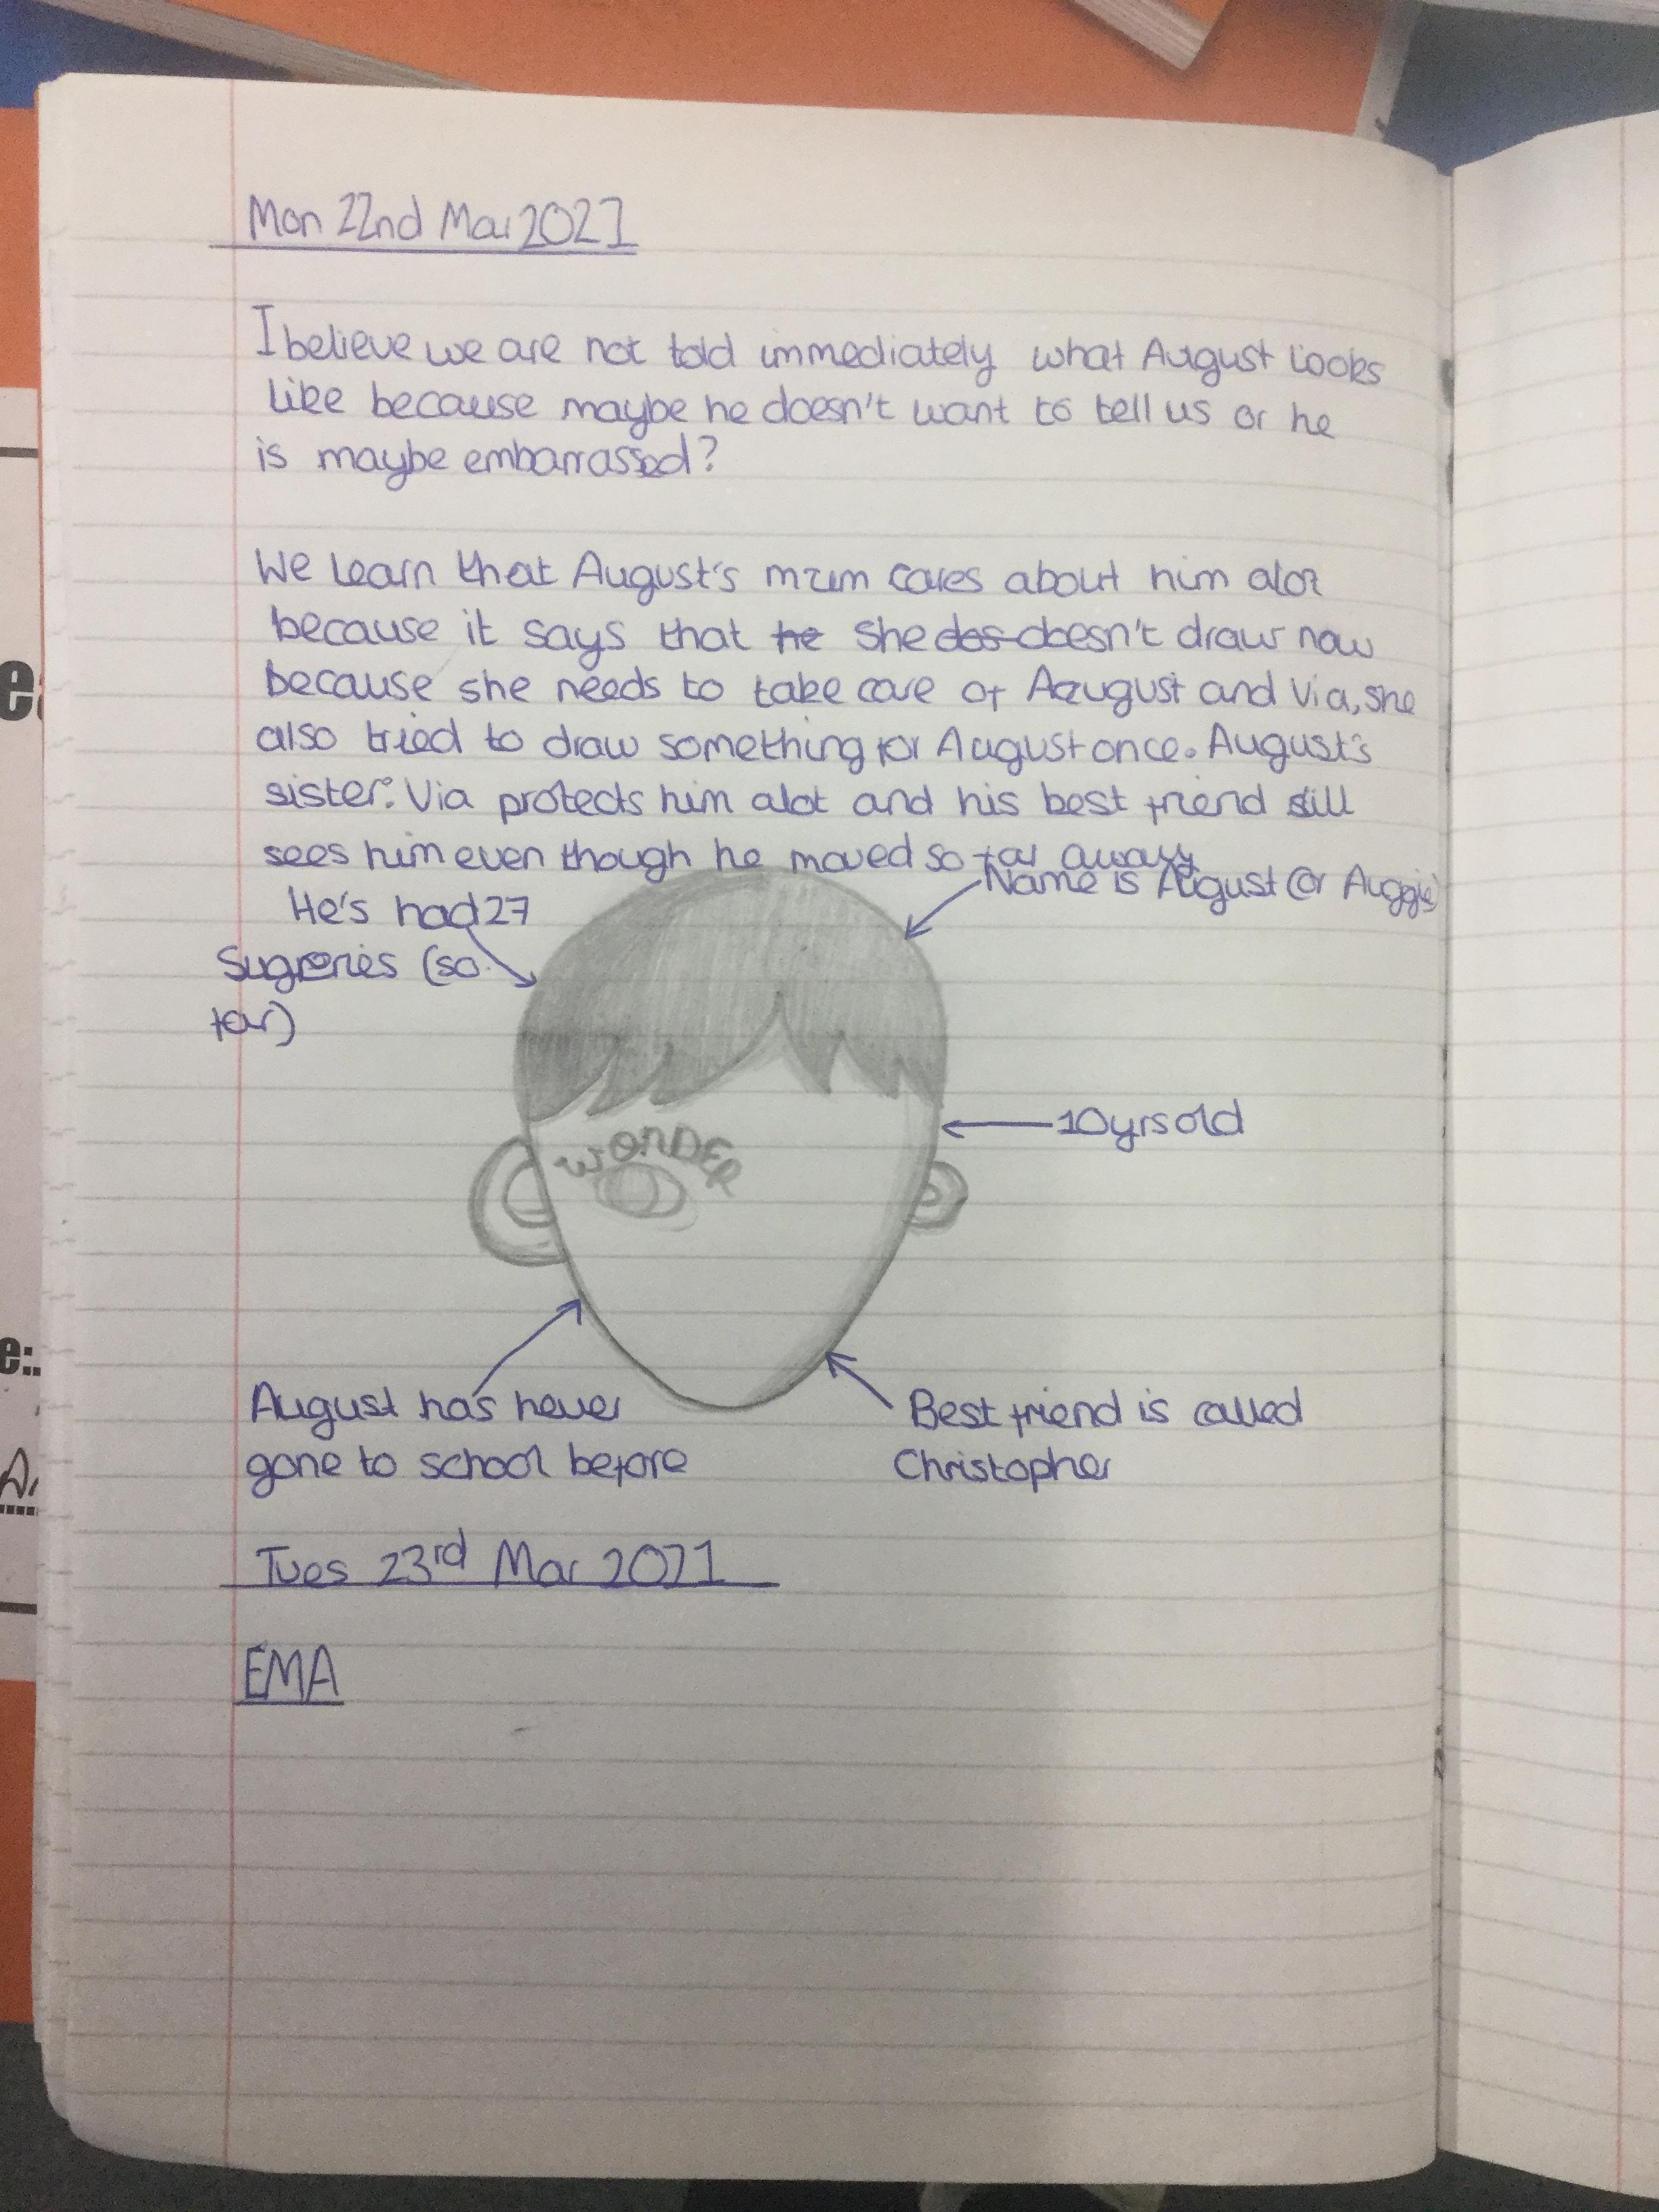 Mon 22nd Mar 2021
I believe we are not told immediately what August looks
like because maybe he doesn't want to tell us or he
is maybe embarrassed?
We learn that August's mum cares about him alot
because it says that he she dos doesn't draw now
because she needs to take care of August and Via, she
also tried to draw something for August once. August's
sister: Via protects him alot and his best friend still
sees him even though he moved so far away
Name is August (or Auggie)
He's had 27
Sugreries (so
far)
10 yrs old
WONDER
August has never
gone to school before
Best friend is called
Christopher
Tues 23rd Mar 2021
EMA
e:.